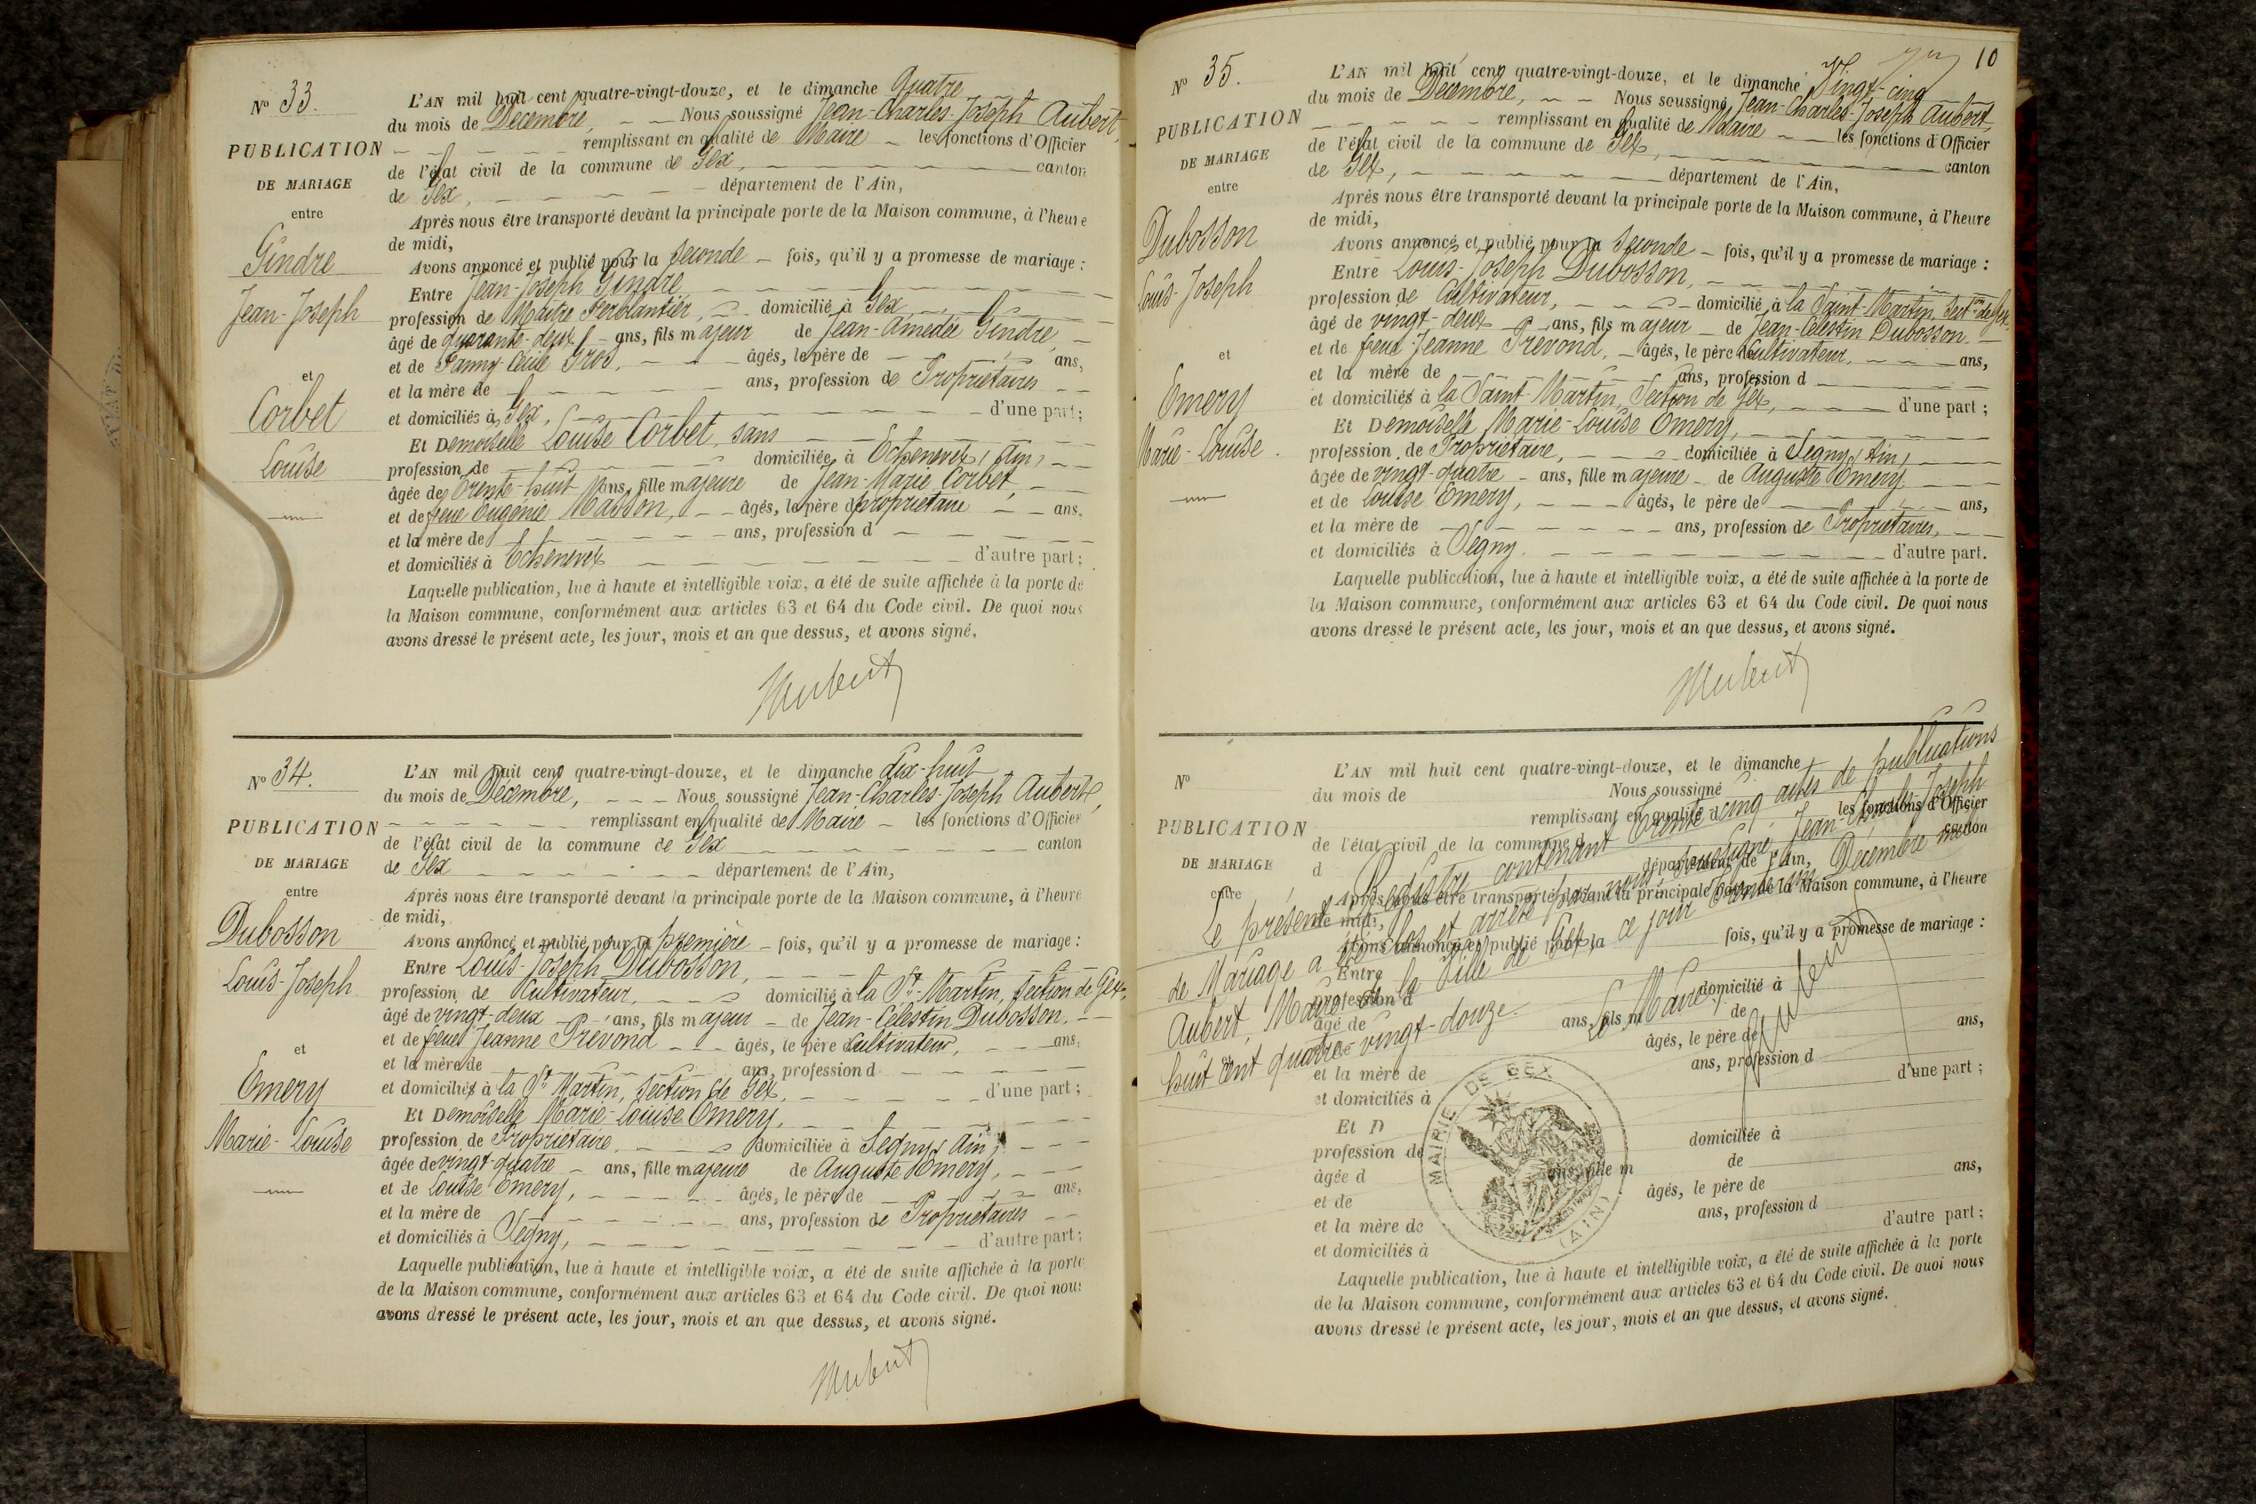 N° 33.
PUBLICATION
DE MARIAGE
entre
Gindre
Jean-Joseph
et
Corbet
Louise
L'AN mil huit cent quatre-vingt-douze, et le dimanche Quatre
du mois de Décembre, Nous soussigné Jean-Charles-Joseph Aubert,
remplissant en qualité de Maire les fonctions d'Officier
de l'état civil de la commune de Gex, canton
de Gex, département de l'Ain,
Après nous être transporté devant la principale porte de la Maison commune, à l'heure
de midi,
Avons annoncé et publié pour la seconde fois, qu'il y a promesse de mariage :
Entre Jean-Joseph Gindre,
profession de Maître Ferblantier, domicilié à Gex,
âgé de quarante-deux ans, fils majeur de Jean-Amédée Gindre,
et de Fanny Cécile Gros, âgés, le père de ans,
et la mère de ans, profession de Propriétaires
et domiciliés à Gex, d'une part;
Et Demoiselle Louise Corbet, sans
profession de domiciliée à Echenevex (Ain)
âgée de trente-huit ans, fille majeure de Jean-Marie Corbet,
et de feue Eugénie Masson, âgés, le père de propriétaire ans,
et la mère de ans, profession d
et domiciliés à Echenevex d'autre part;
Laquelle publication, lue à haute et intelligible voix, a été de suite affichée à la porte de
la Maison commune, conformément aux articles 63 et 64 du Code civil. De quoi nous
avons dressé le présent acte, les jour, mois et an que dessus, et avons signé.
Aubert
N° 34.
PUBLICATION
DE MARIAGE
entre
Dubosson
Louis-Joseph
et
Emery
Marie-Louise
L'AN mil huit cent quatre-vingt-douze, et le dimanche dix-huit
du mois de Décembre, Nous soussigné Jean-Charles-Joseph Aubert,
remplissant en qualité de Maire les fonctions d'Officier
de l'état civil de la commune de Gex canton
de Gex département de l'Ain,
Après nous être transporté devant la principale porte de la Maison commune, à l'heure
de midi,
Avons annoncé et publié pour la première fois, qu'il y a promesse de mariage :
Entre Louis-Joseph Dubosson,
profession de Cultivateur, domicilié à la St-Martin, section de Gex,
âgé de vingt-deux ans, fils majeur de Jean-Célestin Dubosson,
et de feue Jeanne Prévond âgés, le père Cultivateur, ans,
et la mère de ans, profession d
et domiciliés à la St Martin, section de Gex, d'une part;
Et Demoiselle Marie-Louise Emery,
profession de Propriétaire, domiciliée à Segny (Ain)
âgée de vingt-quatre ans, fille majeure de Auguste Emery,
et de Louise Emery, âgés, le père de ans,
et la mère de ans, profession de Propriétaires
et domiciliés à Segny, d'autre part;
Laquelle publication, lue à haute et intelligible voix, a été de suite affichée à la porte
de la Maison commune, conformément aux articles 63 et 64 du Code civil. De quoi nous
avons dressé le présent acte, les jour, mois et an que dessus, et avons signé.
Aubert
10
N° 35.
PUBLICATION
DE MARIAGE
entre
Dubosson
Louis-Joseph
et
Emery
Marie-Louise.
L'AN mil huit cent quatre-vingt-douze, et le dimanche Vingt-cinq
du mois de Décembre, Nous soussigné Jean-Charles-Joseph Aubert,
remplissant en qualité de Maire les fonctions d'Officier
de l'état civil de la commune de Gex, canton
de Gex, département de l'Ain,
Après nous être transporté devant la principale porte de la Maison commune, à l'heure
de midi,
Avons annoncé et publié pour la seconde fois, qu'il y a promesse de mariage :
Entre Louis-Joseph Dubosson,
profession de Cultivateur, domicilié à la Saint-Martin, Secton de Gex,
âgé de vingt-deux ans, fils majeur de Jean-Célestin Dubosson
et de feue Jeanne Prévond, âgés, le père Cultivateur, ans,
et la mère de ans, profession d
et domiciliés à la Saint-Martin, Section de Gex, d'une part ;
Et Demoiselle Marie-Louise Emery,
profession de Propriétaire, domiciliée à Segny (Ain)
âgée de vingt-quatre ans, fille majeure de Auguste Emery
et de Louise Emery, âgés, le père de ans,
et la mère de ans, profession de Propriétaires,
et domiciliés à Segny. d'autre part.
Laquelle publication, lue à haute et intelligible voix, a été de suite affichée à la porte de
la Maison commune, conformément aux articles 63 et 64 du Code civil. De quoi nous
avons dressé le présent acte, les jour, mois et an que dessus, et avons signé.
Aubert
N°
PUBLICATION
DE MARIAGE
entre
L'AN mil huit cent quatre-vingt-douze, et le dimanche
du mois de Nous soussigné
remplissant en qualité d les fonctions d'Officier
de l'état civil de la commune d canton
d département de l'Ain,
Après nous être transporté devant la principale porte de la Maison commune, à l'heure
de midi,
Avons annoncé et publié pour la fois, qu'il y a promesse de mariage :
Entre
profession d domicilié à
âgé de ans, fils m de
âgés, le père de ans,
et la mère de ans, profession d
et domiciliés à d'une part ;
Et D
profession de domiciliée à
âgée d ans, fille m de
et de âgés, le père de ans,
et la mère de ans, profession d
et domiciliés à d'autre part ;
Laquelle publication, lue à haute et intelligible voix, a été de suite affichée à la porte
de la Maison commune, conformément aux articles 63 et 64 du Code civil. De quoi nous
avons dressé le présent acte, les jour, mois et an que dessus, et avons signé.
Le présent Registre contenant trente cinq actes de publications
de Mariage a été clos et arrêté par nous soussigné Jean-Charles-Joseph
Aubert, Maire de la Ville de Gex, ce jour trente-un Décembre mil
huit cent quatre-vingt-douze.
Le Maire,
Aubert
MAIRIE DE GEX
(AIN)